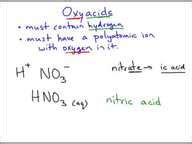 Oxyacids
• must contain hydrogen
• must have a polyatomic ion
with oxygen in it.
H⁺ NO₃⁻ nitrate → ic acid
HNO₃ (aq) nitric acid